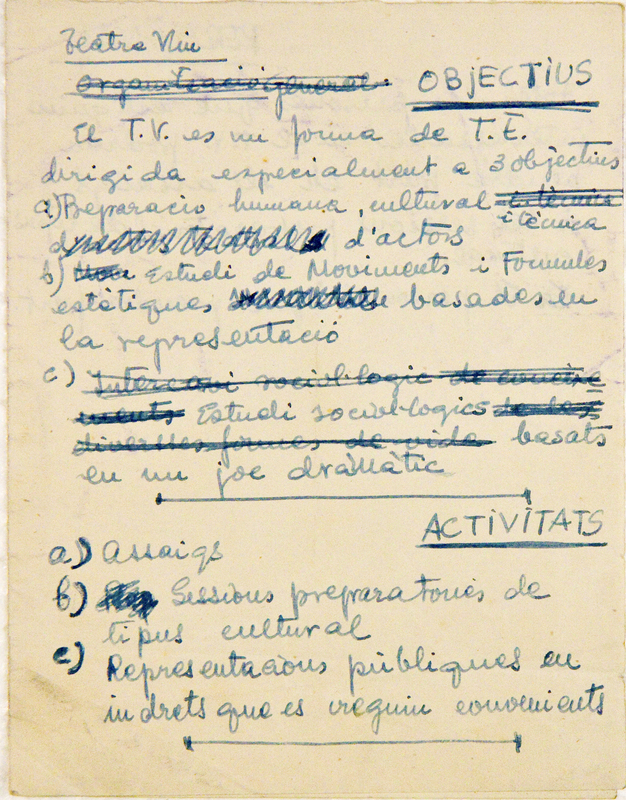 Teatre Viu
Organització general OBJECTIUS
El T.V. es un forma de T.E.
dirigida especialment a 3 objectius
a) Preparacio humana, cultural i tècnica
i tècnica
d'actors
b) Estudi de Moviments i Formules
estètiques basades en
la representació
c) Intercanvi sociol·logic de coneixe
ments Estudi sociol·logics de les
diverses formes de vida basats
en un joc dramàtic
ACTIVITATS
a) Assaigs
b) Sessions preparatories de
tipus cultural
c) Representacions públiques en
indrets que es veguin convenients